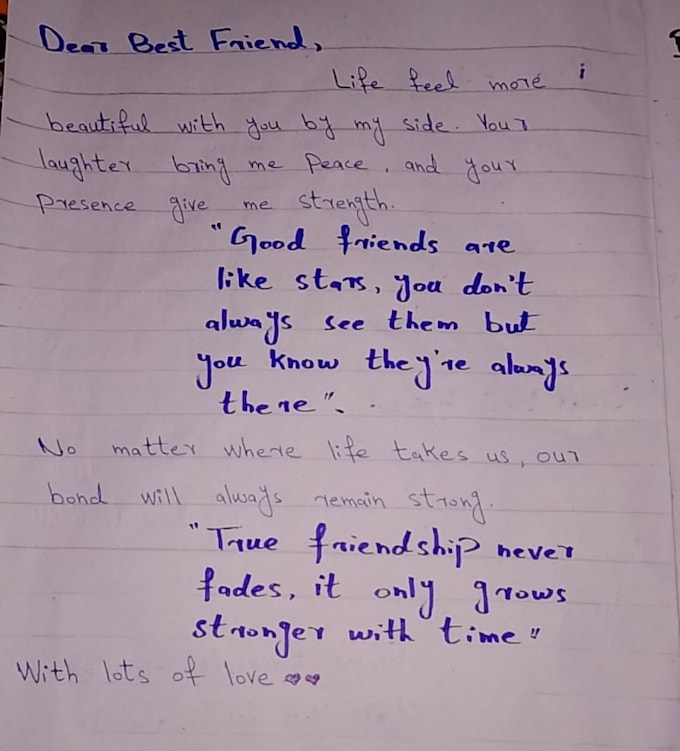 Dear Best Friend,
Life feel more
beautiful with you by my side. Your
laughter bring me Peace, and your
Presence give me strength.
"Good friends are
like stars, you don't
always see them but
you know they're always
there".
No matter where life takes us, our
bond will always remain strong.
"True friendship never
fades, it only grows
stronger with time"
With lots of love